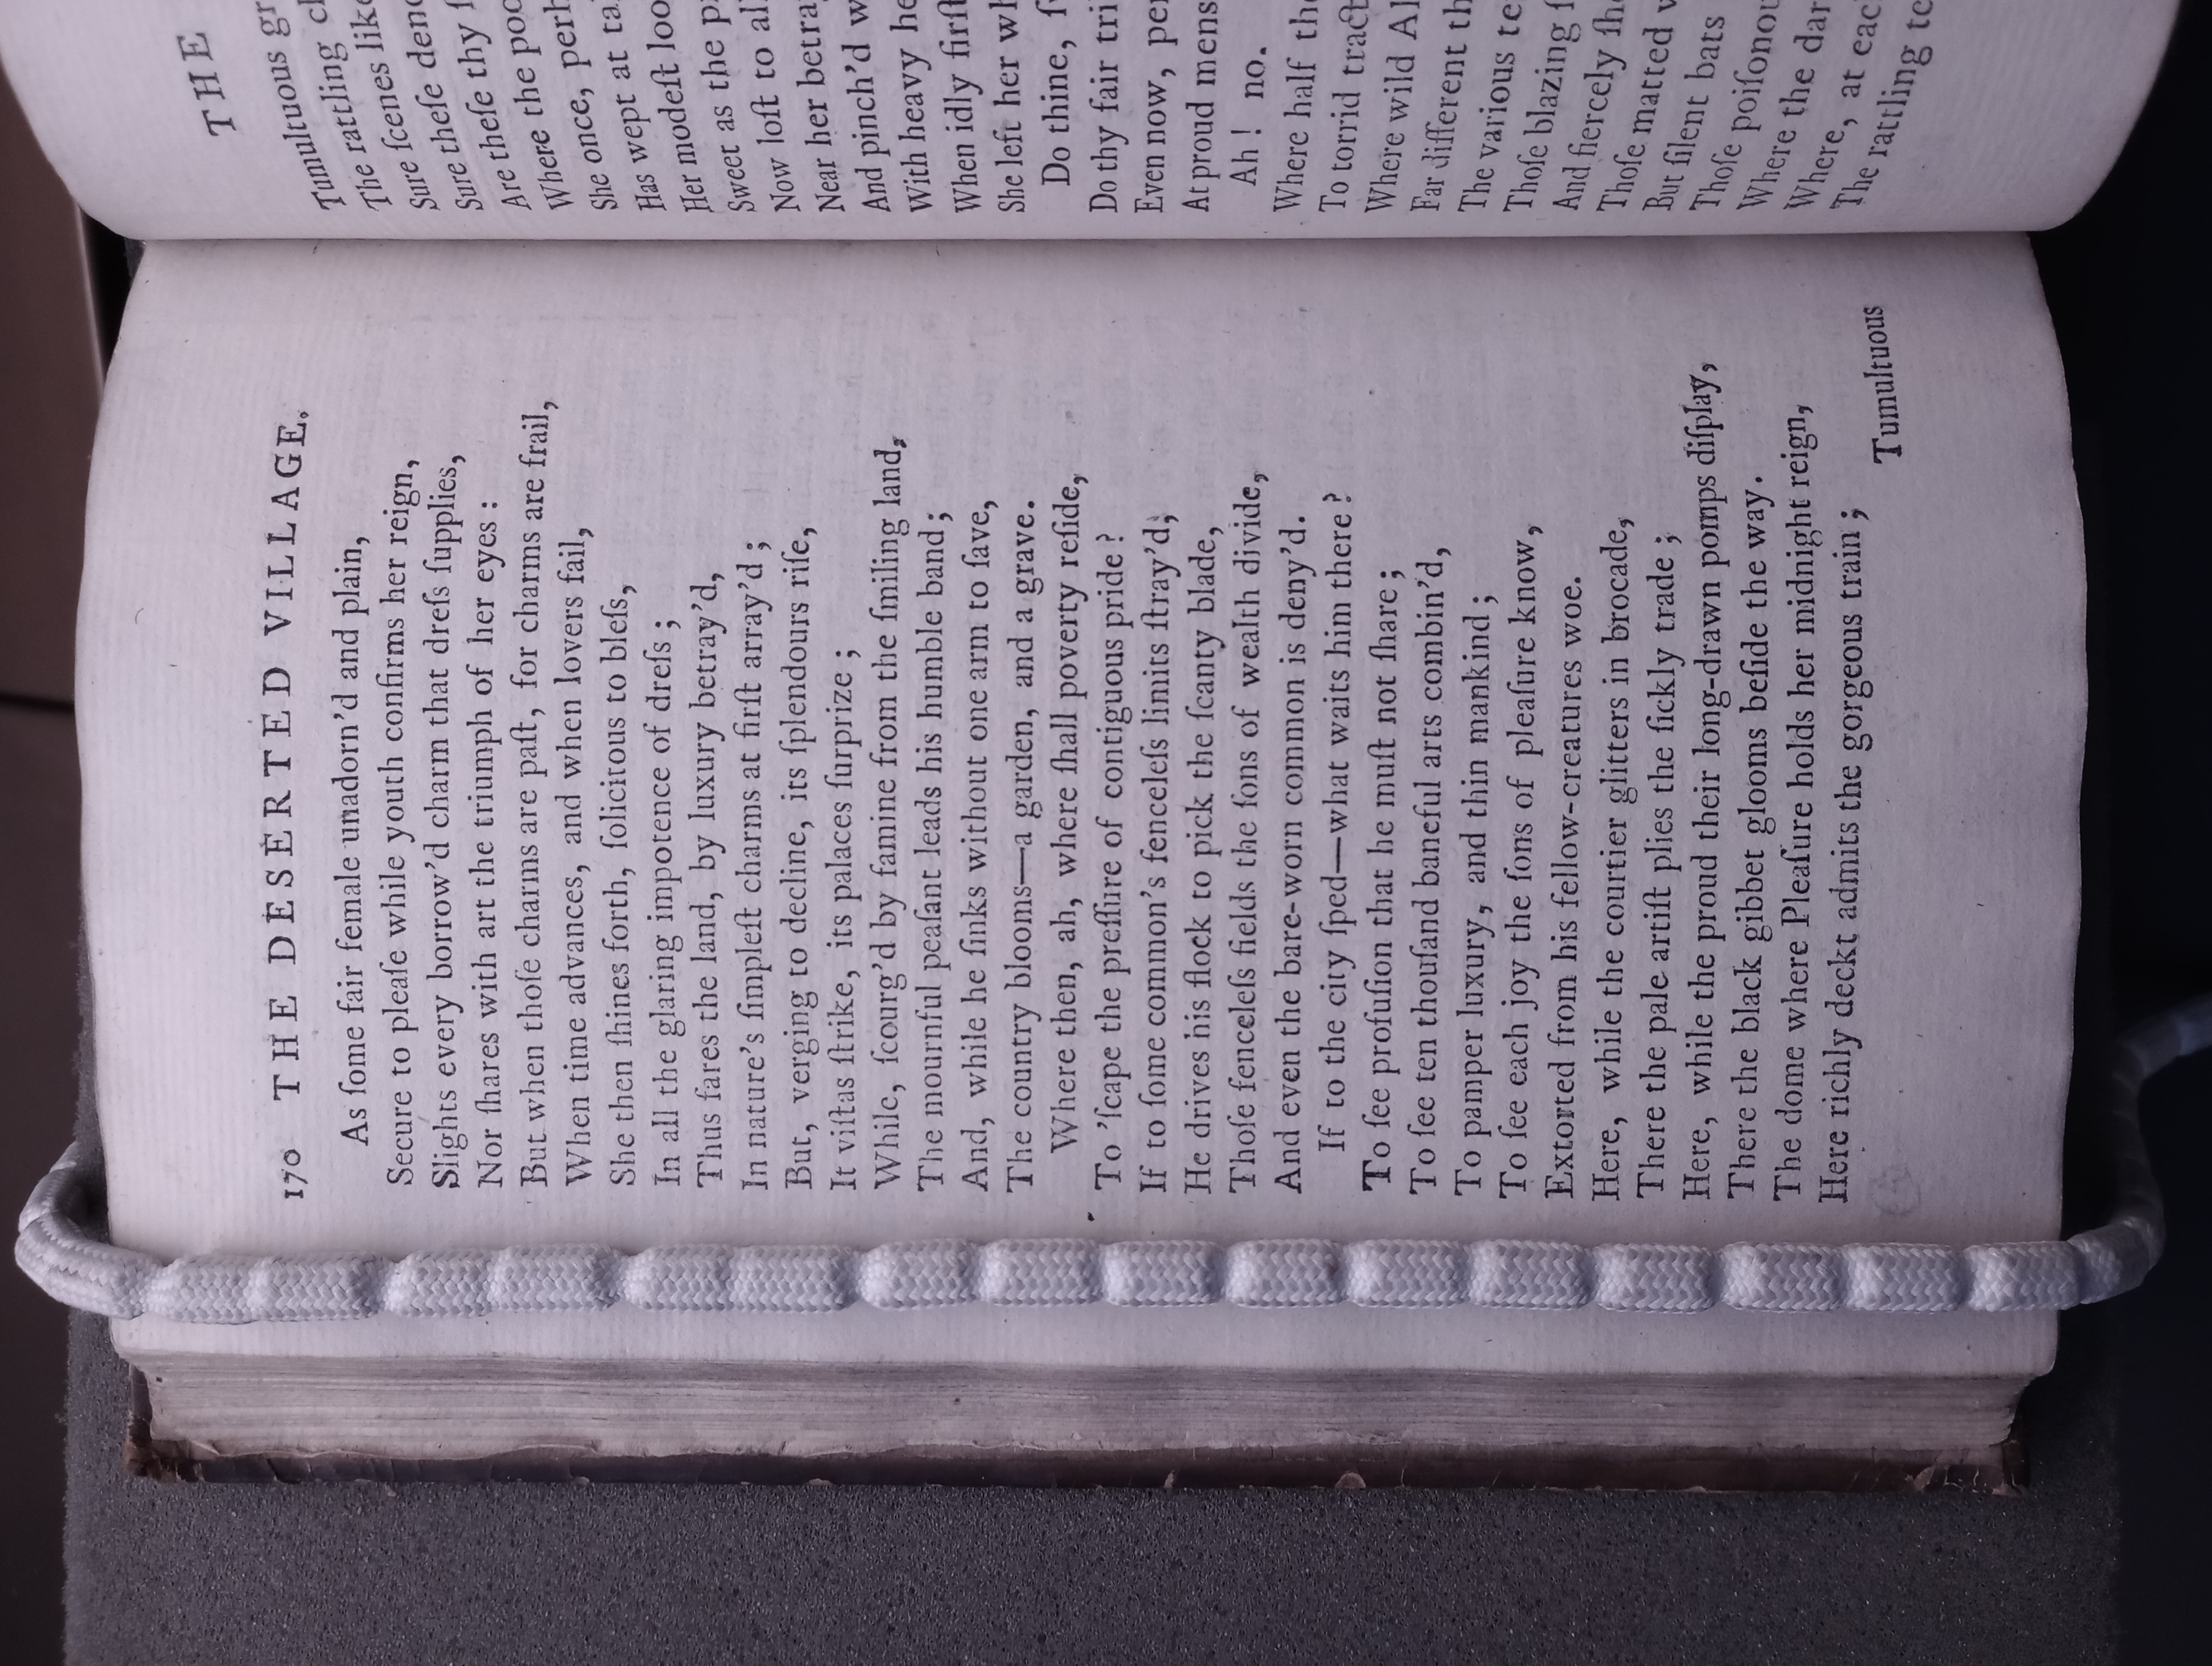 170 THE DESERTED VILLAGE.
As ſome fair female unadorn'd and plain,
Secure to pleaſe while youth confirms her reign,
Slights every borrow'd charm that dreſs ſupplies,
Nor ſhares with art the triumph of her eyes:
But when thoſe charms are paſt, for charms are frail,
When time advances, and when lovers fail,
She then ſhines forth, ſolicitous to bleſs,
In all the glaring impotence of dreſs;
Thus fares the land, by luxury betray'd,
In nature's ſimpleſt charms at firſt array'd;
But, verging to decline, its ſplendours riſe,
It viſtas ſtrike, its palaces ſurprize;
While, ſcourg'd by famine from the ſmiling land,
The mournful peaſant leads his humble band;
And, while he ſinks without one arm to ſave,
The country blooms—a garden, and a grave.
Where then, ah, where ſhall poverty reſide,
To 'ſcape the preſſure of contiguous pride?
If to ſome common's fenceleſs limits ſtray'd,
He drives his flock to pick the ſcanty blade,
Thoſe fenceleſs fields the ſons of wealth divide,
And even the bare-worn common is deny'd.
If to the city ſped—what waits him there?
To ſee profuſion that he muſt not ſhare;
To ſee ten thouſand baneful arts combin'd,
To pamper luxury, and thin mankind;
To ſee each joy the ſons of pleaſure know,
Extorted from his fellow-creatures woe.
Here, while the courtier glitters in brocade,
There the pale artiſt plies the ſickly trade;
Here, while the proud their long-drawn pomps diſplay,
There the black gibbet glooms beſide the way.
The dome where Pleaſure holds her midnight reign,
Here richly deckt admits the gorgeous train;
Tumultuous
THE
Tumultuous gr
The rattling c
The ſcenes like
Sure ſcenes deno
Sure theſe thy
Are theſe the poo
Where the poo
She once, perh
Has wept at ta
Her modeſt loo
Sweet as the p
Now loſt to al
Near her betra
And pinch'd w
With heavy he
When idly firſt
She left her wh
Do thine, ſ
Do thy fair tri
Even now, per
At proud mens
Ah! no.
Where half the
To torrid tract
Where wild Al
Far different th
The various te
Thoſe blazing ſ
And fiercely ſhe
Thoſe matted w
But ſilent bats
Thoſe poiſonou
Where the dar
Where, at eac
The rattling te